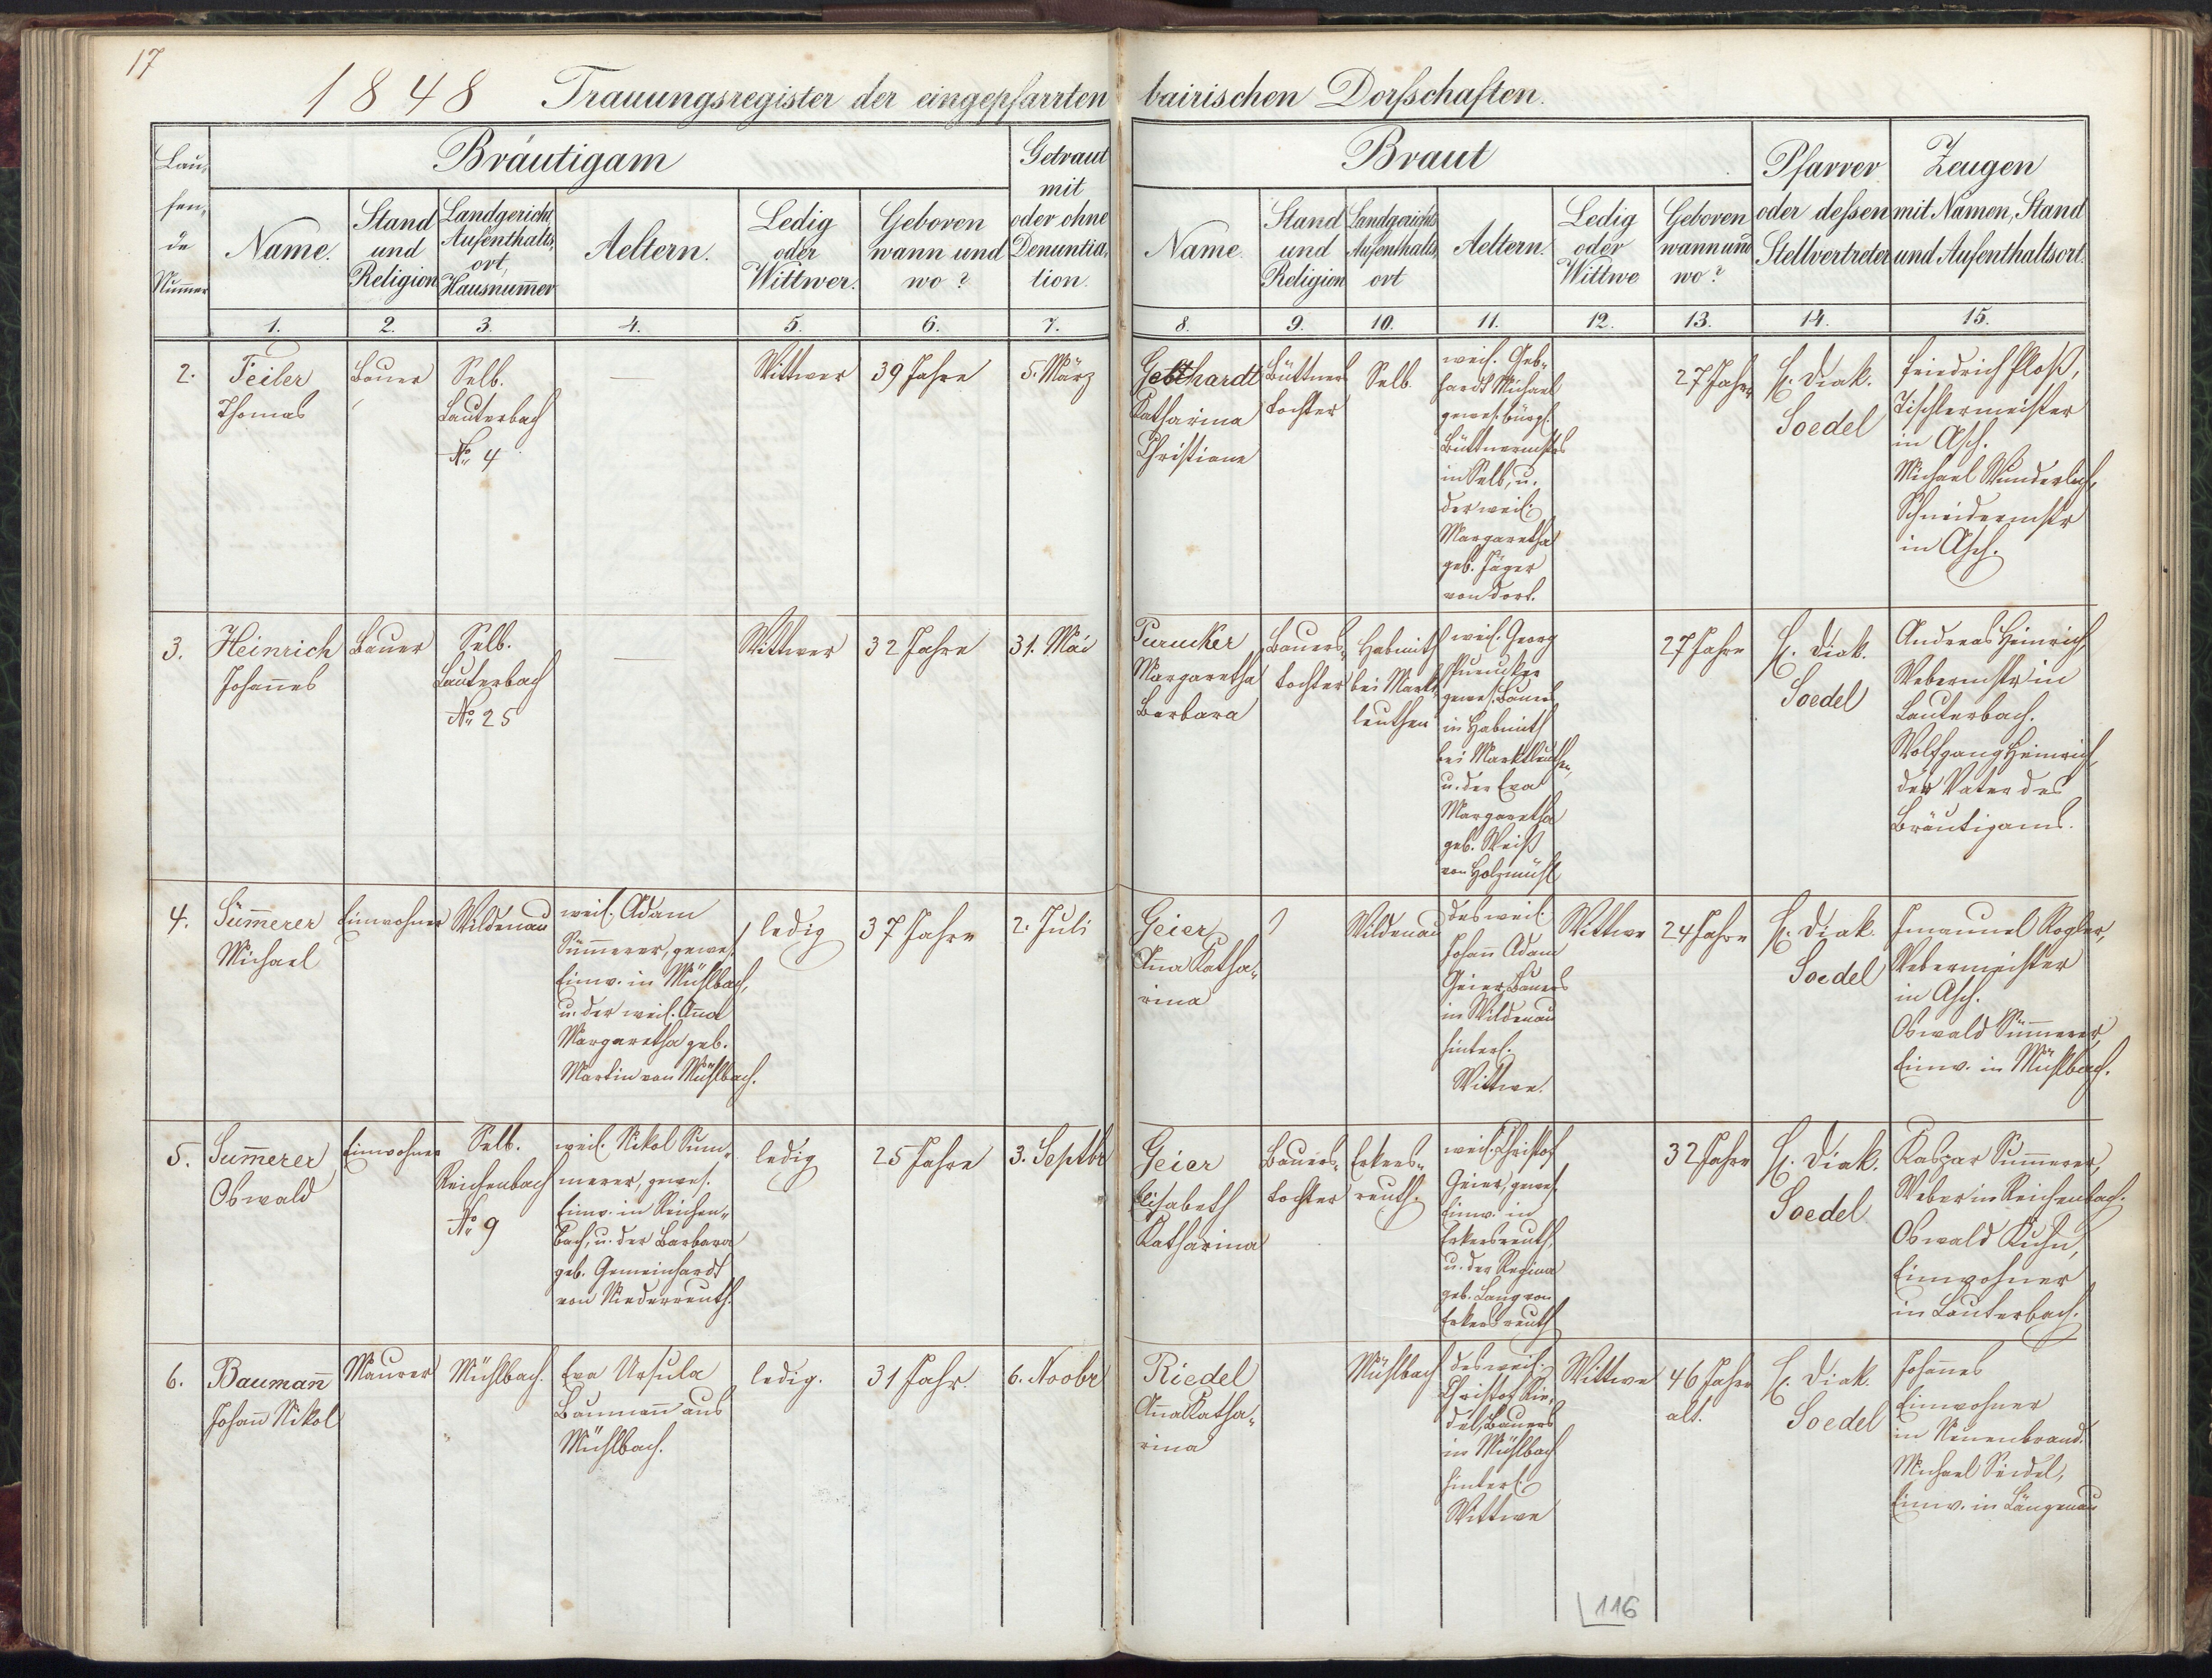 17
1848 Trauungsregister der eingepfarrten bairischen Dorfschaften.
Lau-
fen-
de
Num̅er
Bräutigam
Getraut
mit
oder ohne
Denuntia-
tion.
Braut
Pfarrer
oder dessen
Stellvertreter
Zeugen
mit Namen, Stand
und Aufenthaltsort.
Name.
Stand
und
Religion
Landgericht
Aufenthalts-
ort,
Hausnum̅er
Aeltern.
Ledig
oder
Wittwer.
Geboren
wann und
wo?
Name.
Stand
und
Religion
Landgerichts
Aufenthalts-
ort
Aeltern.
Ledig
oder
Wittwe
Geboren
wann und
wo?
1. 2. 3. 4. 5. 6. 7. 8. 9. 10. 11. 12. 13. 14. 15.
2.
Feiler
Thomas
Bauer
Selb.
Lauterbach
No. 4
—
Wittwer
39 Jahre
5. März
Gebhardt
Katharina
Christiana
Büttners
tochter
Selb.
weil. Geb-
hardt Michael
gewes. bürgl.
Büttnermstrs
in Selb, u.
der weil.
Margaretha
geb. Jäger
von dort.
27 Jahre
H. Diak.
Soedel
Friedrich Ploß,
Tischlermeister
in Asch.
Michael Wunderlich,
Schneidermstr
in Asch.
3.
Heinrich
Johan̅es
Bauer
Selb.
Lauterbach
No. 25
—
Wittwer
32 Jahre
31. Mai
Purucker
Margaretha
Barbara
Bauers-
tochter
Habnith
bei Markt-
leuthen
weil. Georg
Purucker
gewes. Bauers
in Habnith
bei Marktleuthen,
u. der Eva
Margaretha
geb. Weiß
von Holzmühl
27 Jahre
H. Diak.
Soedel
Andreas Heinrich,
Webermstr in
Lauterbach.
Wolfgang Heinrich,
der Vater des
Bräutigams.
4.
Sum̅erer
Michael
Einwohner
Wildenau
weil. Adam
Sum̅erer, gewes.
Einw. in Mühlbach,
u. der weil. An̅a
Margaretha geb.
Martin von Mühlbach.
ledig
37 Jahre
2. Juli
Geier
An̅a Katha-
rina
Wildenau
des weil.
Johan̅ Adam
Geier, Bauers
in Wildenau
hinterl.
Wittwe.
Wittwe
24 Jahre
H. Diak.
Soedel
Imanuel Rogler,
Webermeister
in Asch.
Oswald Sum̅erer,
Einw. in Mühlbach.
5.
Sum̅erer
Oswald
Einwohner
Selb.
Reichenbach
No. 9
weil. Nikol Sum-
merer, gewes.
Einw. in Reichen-
bach, u. der Barbara
geb. Gemeinhardt
von Niederreuth.
ledig
25 Jahre
3. Septbr
Geier
Elisabeth
Katharina
Bauers-
tochter
Erkers-
reuth.
weil. Christof
Geier, gewes.
Einw. in
Erkersreuth,
u. der Regina
geb. Lang von
Erkersreuth
32 Jahre
H. Diak.
Soedel
Kaspar Sum̅erer,
Weber in Reichenbach.
Oswald Kuhn,
Einwohner
in Lauterbach.
6.
Bauman̅
Johan̅ Nikol
Maurer
Mühlbach.
Eva Ursula
Bauman̅ aus
Mühlbach.
ledig.
31 Jahr.
6. Novbr
Riedel
An̅a Katha-
rina
Mühlbach
des weil.
Christof Rie-
del, Bauers
in Mühlbach
hinterl.
Wittwe
Wittwe
46 Jahre
alt.
H. Diak.
Soedel
Johan̅es
Einwohner
in Neuenbrand.
Michael Seidel,
Einw. in Längenau
116